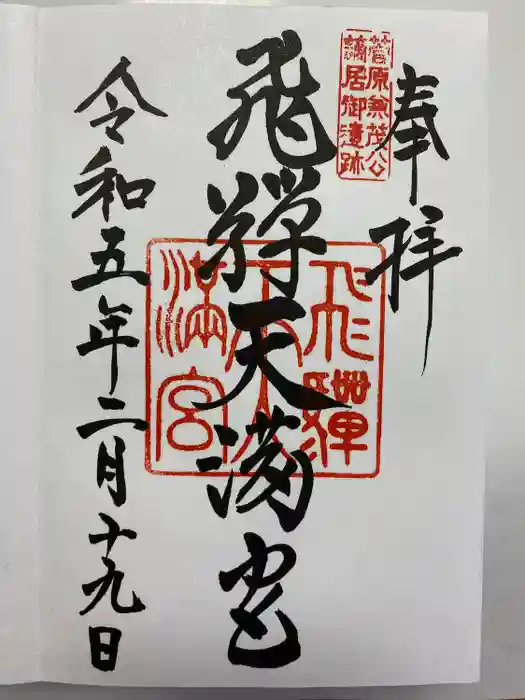 奉拝
菅原兼茂公
謫居御遺跡
飛騨天満宮
飛騨天満宮
令和五年二月十九日